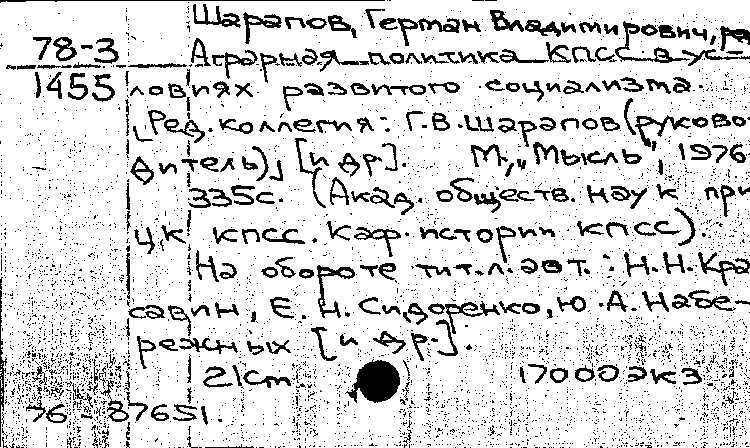 Шарапов, Герман Владимирович, ре
78-3 Аграрная политика КПСС в ус-
1455 ловиях развитого социализма.
[Ред. коллегия: Г.В. Шарапов (руково-
дитель), [и др]. М., „Мысль", 1976
335с. (Акад. обществ. наук при
ЦК КПСС. Каф. истории КПСС).
На обороте тит. л. авт.: Н.Н. Кра
савин, Е. Н. Сидоренко, Ю. А. Набе-
режных [и др.].
21cm. 17000 экз.
76 - 87651.